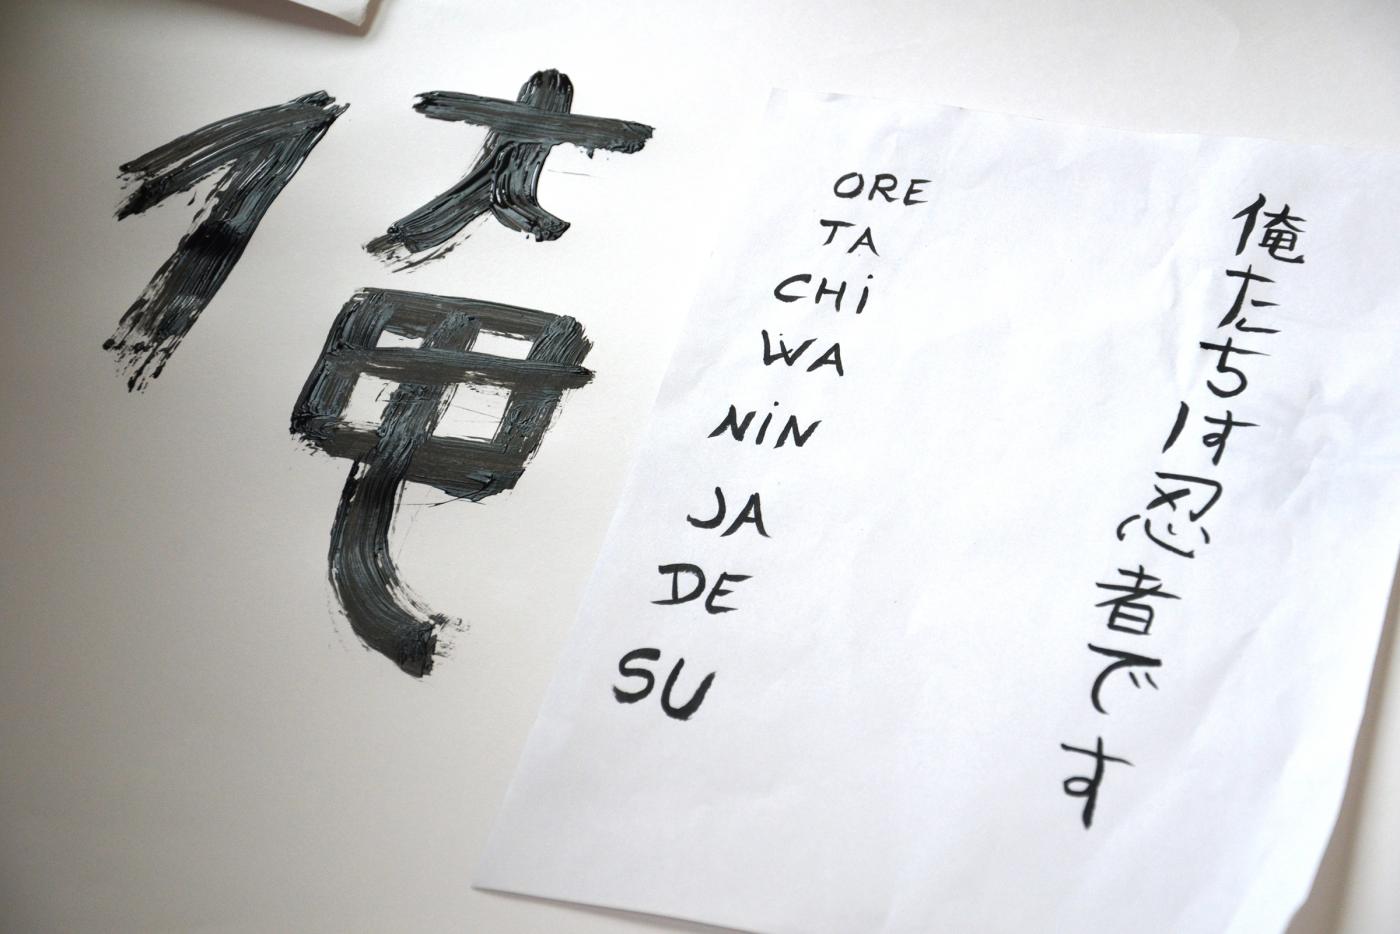 俺
ORE
TA
CHi
WA
NiN
JA
DE
SU
俺たちは忍者です